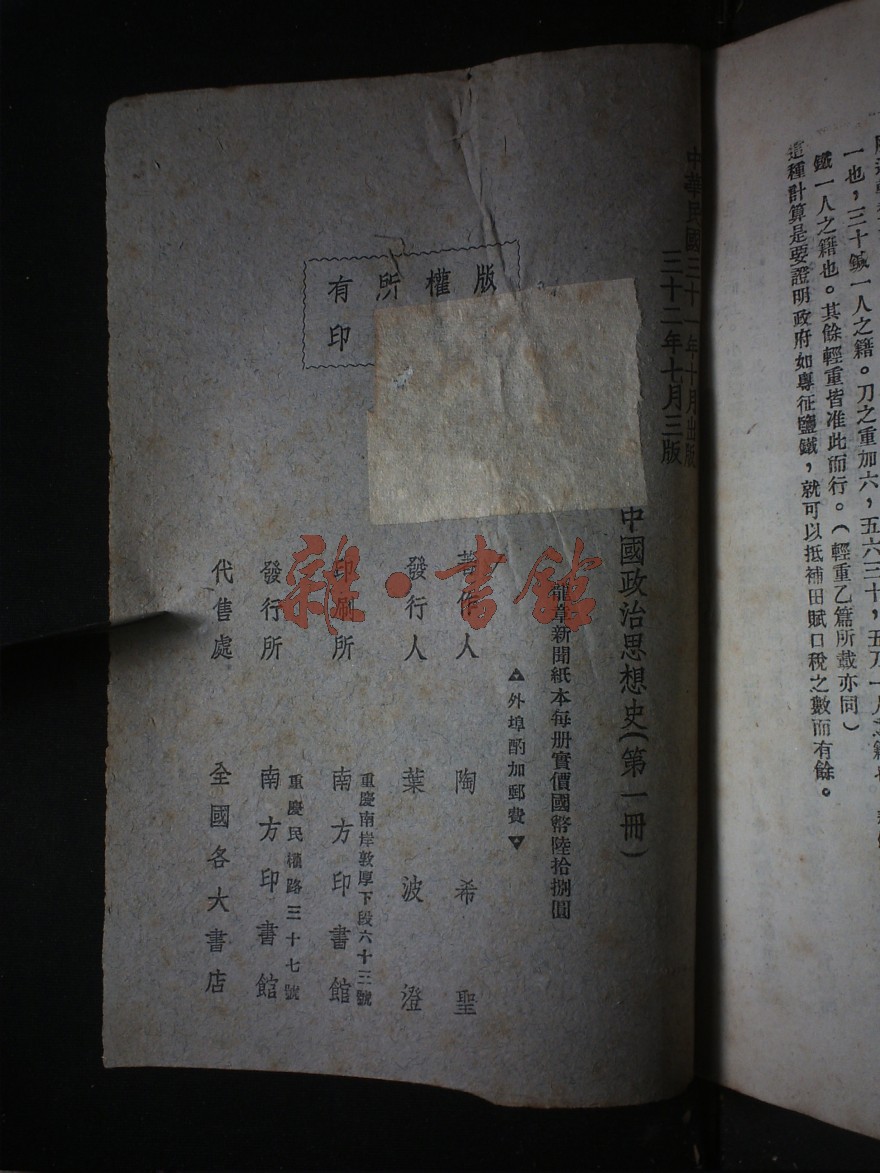 這種計算是要證明政府如專征鹽鐵，就可以抵補田賦口稅之數而有餘。
鐵一人之籍也。其餘輕重皆准此而行。（輕重乙篇所載亦同）
一也，三十鍼一人之籍。刀之重加六，五六三十，五刀一人之籍也
中華民國三十一年十月出版
三十二年七月三版
版權所有
印
中國政治思想史（第一冊）
龍章新聞紙本每册實價國幣陸拾捌圓
▲外埠酌加郵費▼
著作人 陶希聖
發行人 葉波澄
印刷所 南方印書館
重慶南岸敦厚下段六十三號
發行所 南方印書館
重慶民權路三十七號
代售處 全國各大書店
雜·書館